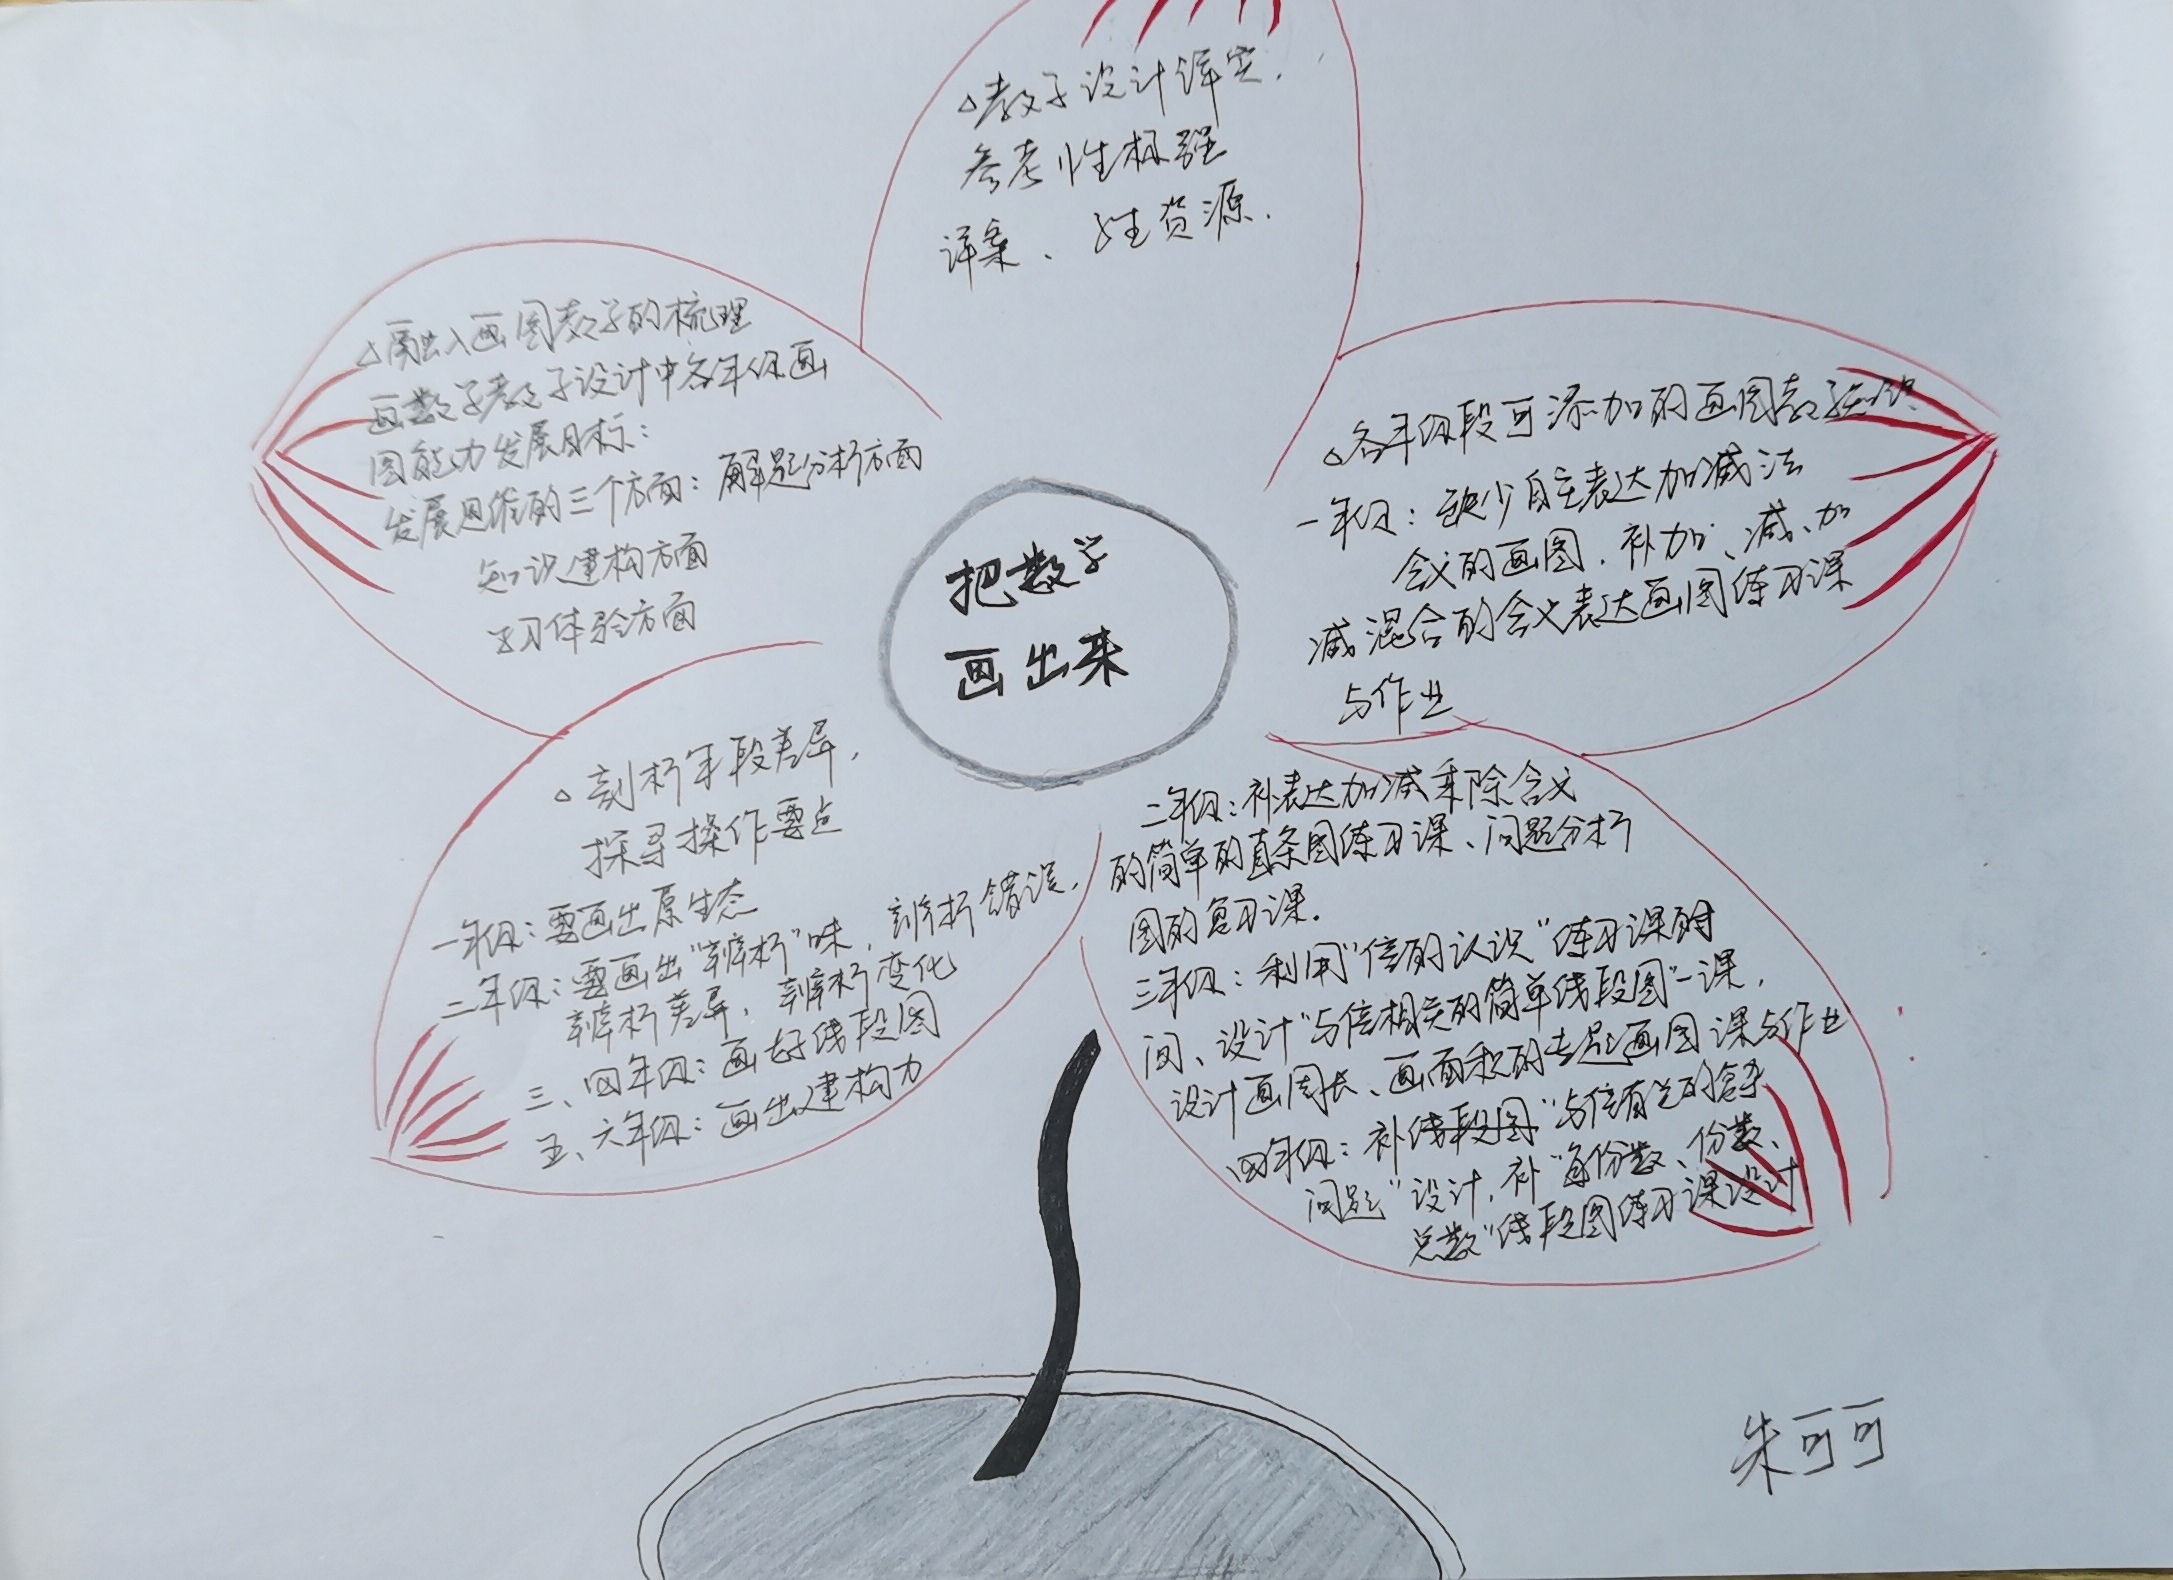 △教学设计详实.
参考性极强
详案、学生资源.
△融入画图教学的梳理
画数学教学设计中各年级画
图能力发展目标:
发展思维的三个方面: 解题分析方面
知识建构方面
学习体验方面
把数学
画出来
△各年级段可添加的画图教学
一年级: 缺少自主表达加减法
含义的画图, 补加、减、加
减混合的含义表达画图练习课
与作业
△剖析年段差异,
探寻操作要点
一年级: 要画出原生态
二年级: 要画出“辨析”味, 辨析错误,
辨析差异, 辨析变化
三、四年级: 画好线段图
五、六年级: 画出建构力
二年级: 补表达加减乘除含义
的简单的直条图练习课、问题分析
图的复习课.
三年级: 利用“倍的认识”练习课时
间、设计“与倍相关的简单线段图”一课,
设计画周长、画面积的专题画图课与作业
四年级: 补线段图“与倍有关的含杂
问题”设计, 补“每份数、份数、
总数”线段图练习课设计
朱可可